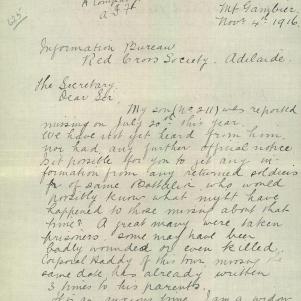 625
A Compan
A I F
Mt Gambier.
Nov. 4th 1916
Information Bureau
Red Cross Society. Adelaide.
The Secretary.
Dear Sir.
My son (No 211) was reported
missing on July 20th this year.
We have not yet heard from him,
nor had, any further official notice
is it possible for you to get any in-
formation from any returned soldiers
of same Battalion who would
possibly know what might have
happened to those missing about that
time? A great many were taken
prisoners. some may have been
badly wounded or even killed,
Corporal Haddy of this town missing
same date, has already written
3 times to his parents.
anxious time. I am a widow